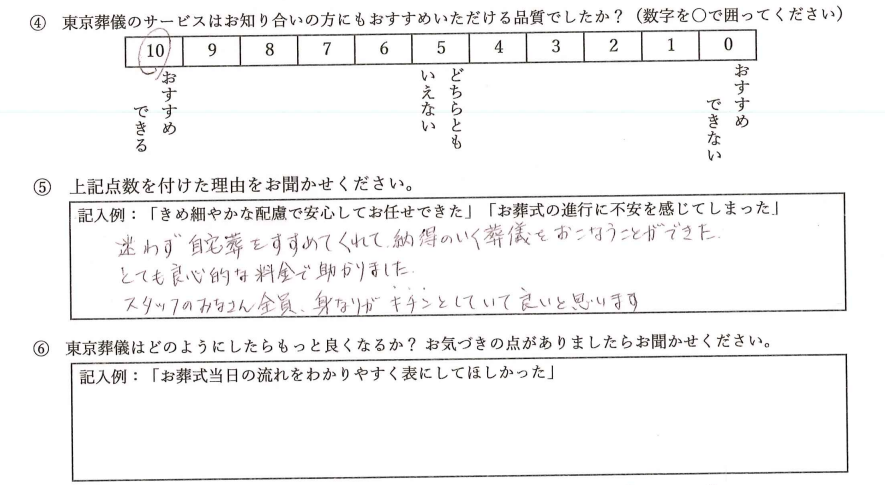 ④ 東京葬儀のサービスはお知り合いの方にもおすすめいただける品質でしたか？（数字を〇で囲ってください）
10 9 8 7 6 5 4 3 2 1 0
おすすめできる
どちらともいえない
おすすめできない
⑤ 上記点数を付けた理由をお聞かせください。
記入例：「きめ細やかな配慮で安心してお任せできた」「お葬式の進行に不安を感じてしまった」
迷わず自宅葬をすすめてくれて、納得のいく葬儀をおこなうことができた。
とても良心的な料金で助かりました。
スタッフのみなさん全員、身なりがキチンとしていて良いと思います
⑥ 東京葬儀はどのようにしたらもっと良くなるか？ お気づきの点がありましたらお聞かせください。
記入例：「お葬式当日の流れをわかりやすく表にしてほしかった」